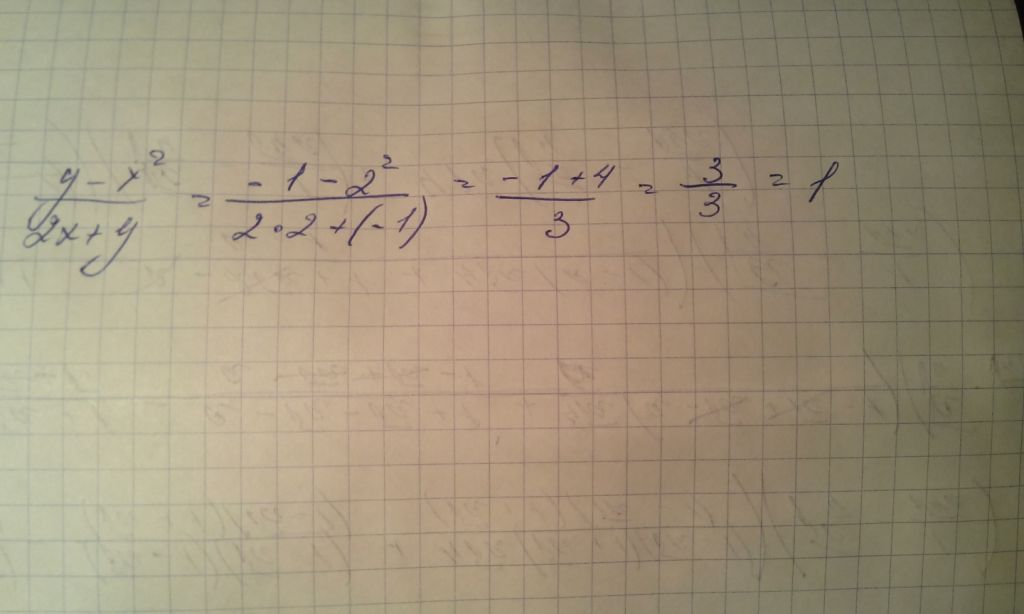 (y - x²)/(2x + y) = (-1 - 2²)/(2·2 + (-1)) = (-1 + 4)/3 = 3/3 = 1